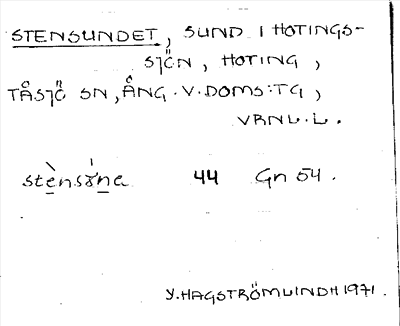 STENSUNDET, SUND I HOTINGS-
SJÖN, HOTING,
TÅSJÖ SN, ÅNG. V. DOMS:TG,
VRNL.L.
44 Gn 54.
Y. HAGSTRÖMLINDH 1971.